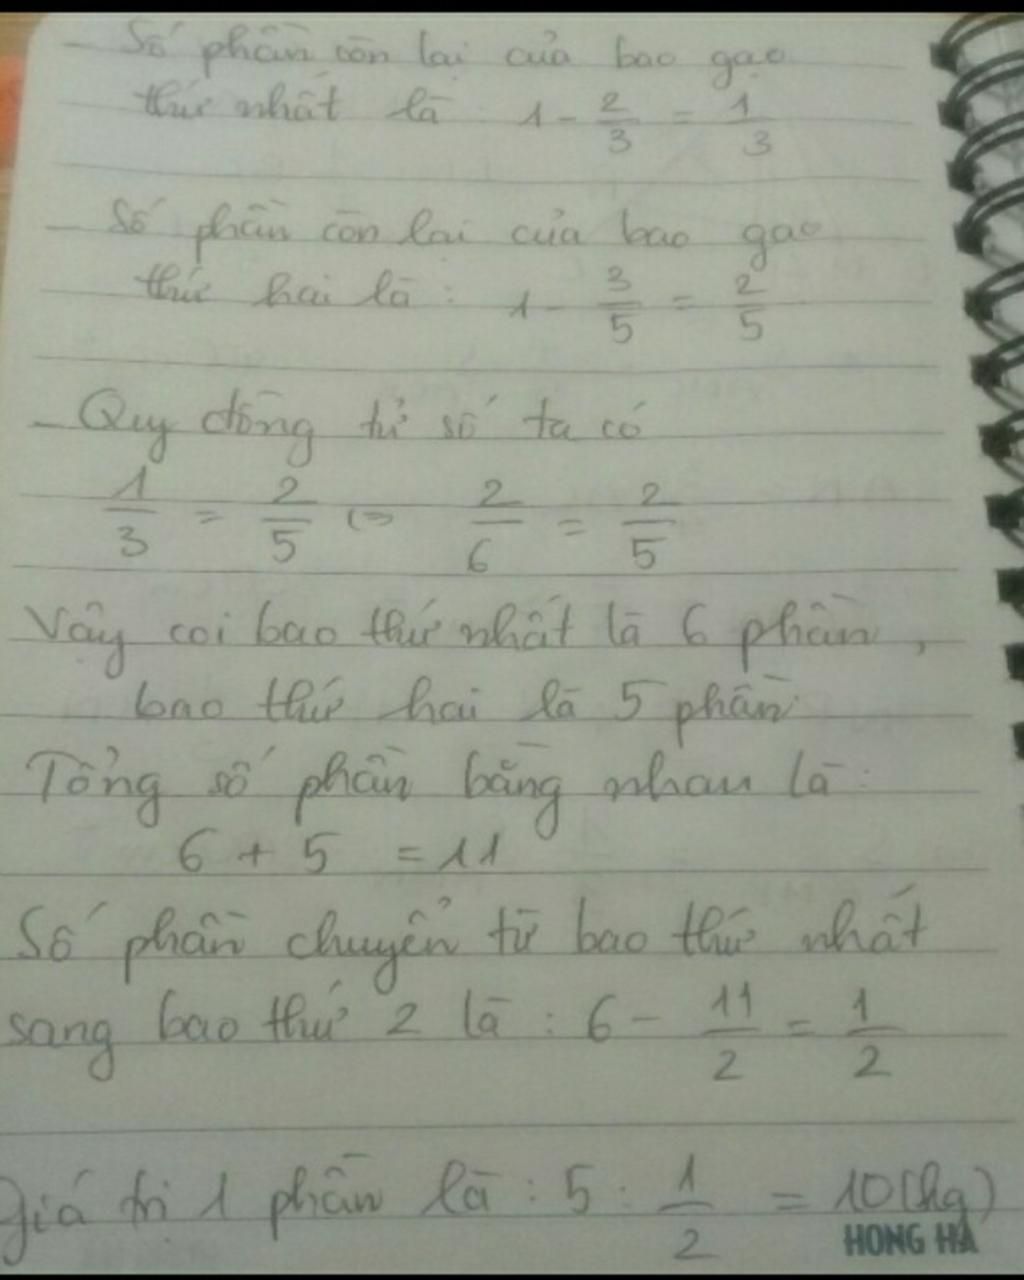 - Số phần còn lại của bao gạo
thứ nhất là 1 - 2/3 = 1/3
- Số phần còn lại của bao gạo
thứ hai là : 1 - 3/5 = 2/5
- Quy đồng tử số ta có
1/3 = 2/5 (=> 2/6 = 2/5
Vậy coi bao thứ nhất là 6 phần,
bao thứ hai là 5 phần.
Tổng số phần bằng nhau là :
6 + 5 = 11
Số phần chuyển từ bao thứ nhất
sang bao thứ 2 là : 6 - 11/2 = 1/2
Giá trị 1 phần là : 5 : 1/2 = 10 (kg)
HONG HA